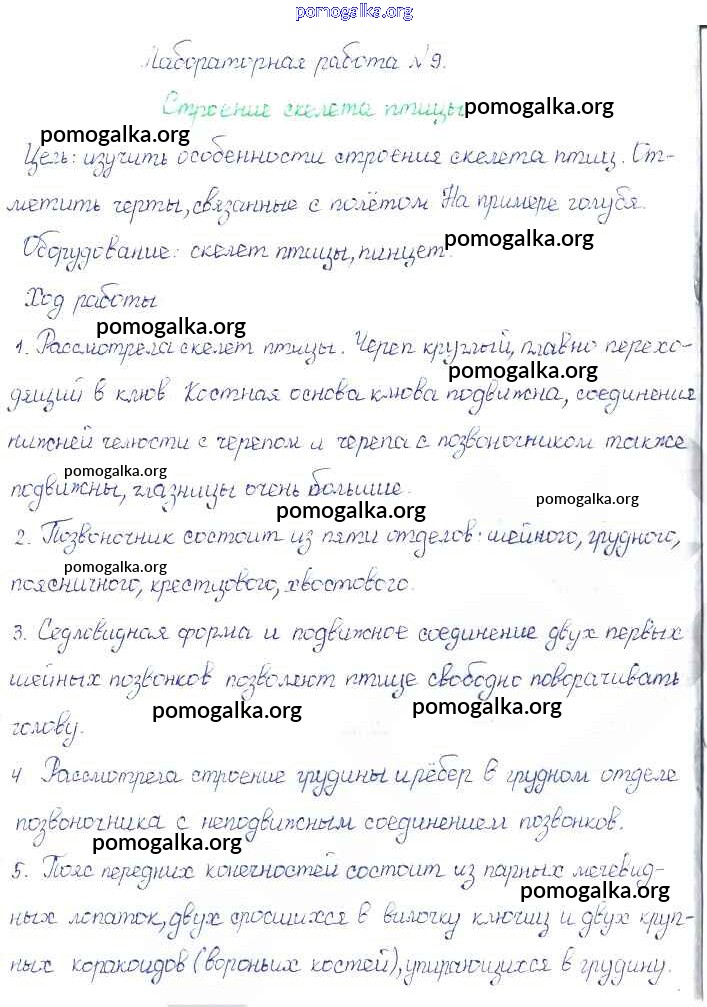 pomogalka.org
Лабораторная работа №9.
Строение скелета птицы pomogalka.org
pomogalka.org
Цель: изучить особенности строения скелета птиц. От-
метить черты, связанные с полётом На примере голубя.
Оборудование: скелет птицы, пинцет. pomogalka.org
Ход работы
pomogalka.org
1. Рассмотрела скелет птицы. Череп круглый, плавно перехо-
pomogalka.org
дящий в клюв Костная основа клюва подвижна, соединения
нижней челюсти с черепом и черепа с позвоночником также
pomogalka.org
подвижны, глазницы очень большие.
pomogalka.org
pomogalka.org
2. Позвоночник состоит из пяти отделов: шейного, грудного,
pomogalka.org
поясничного, крестцового, хвостового.
3. Седловидная форма и подвижное соединение двух первых
шейных позвонков позволяют птице свободно поворачивать
pomogalka.org pomogalka.org
голову.
4 Рассмотрела строение грудины и рёбер в грудном отделе
позвоночника с неподвижным соединением позвонков.
pomogalka.org
5. Пояс передних конечностей состоит из парных мечевид-
pomogalka.org
ных лопаток, двух сросшихся в вилочку ключиц и двух круп-
ных коракоидов (вороньих костей), упирающихся в грудину.
pomogalka.org